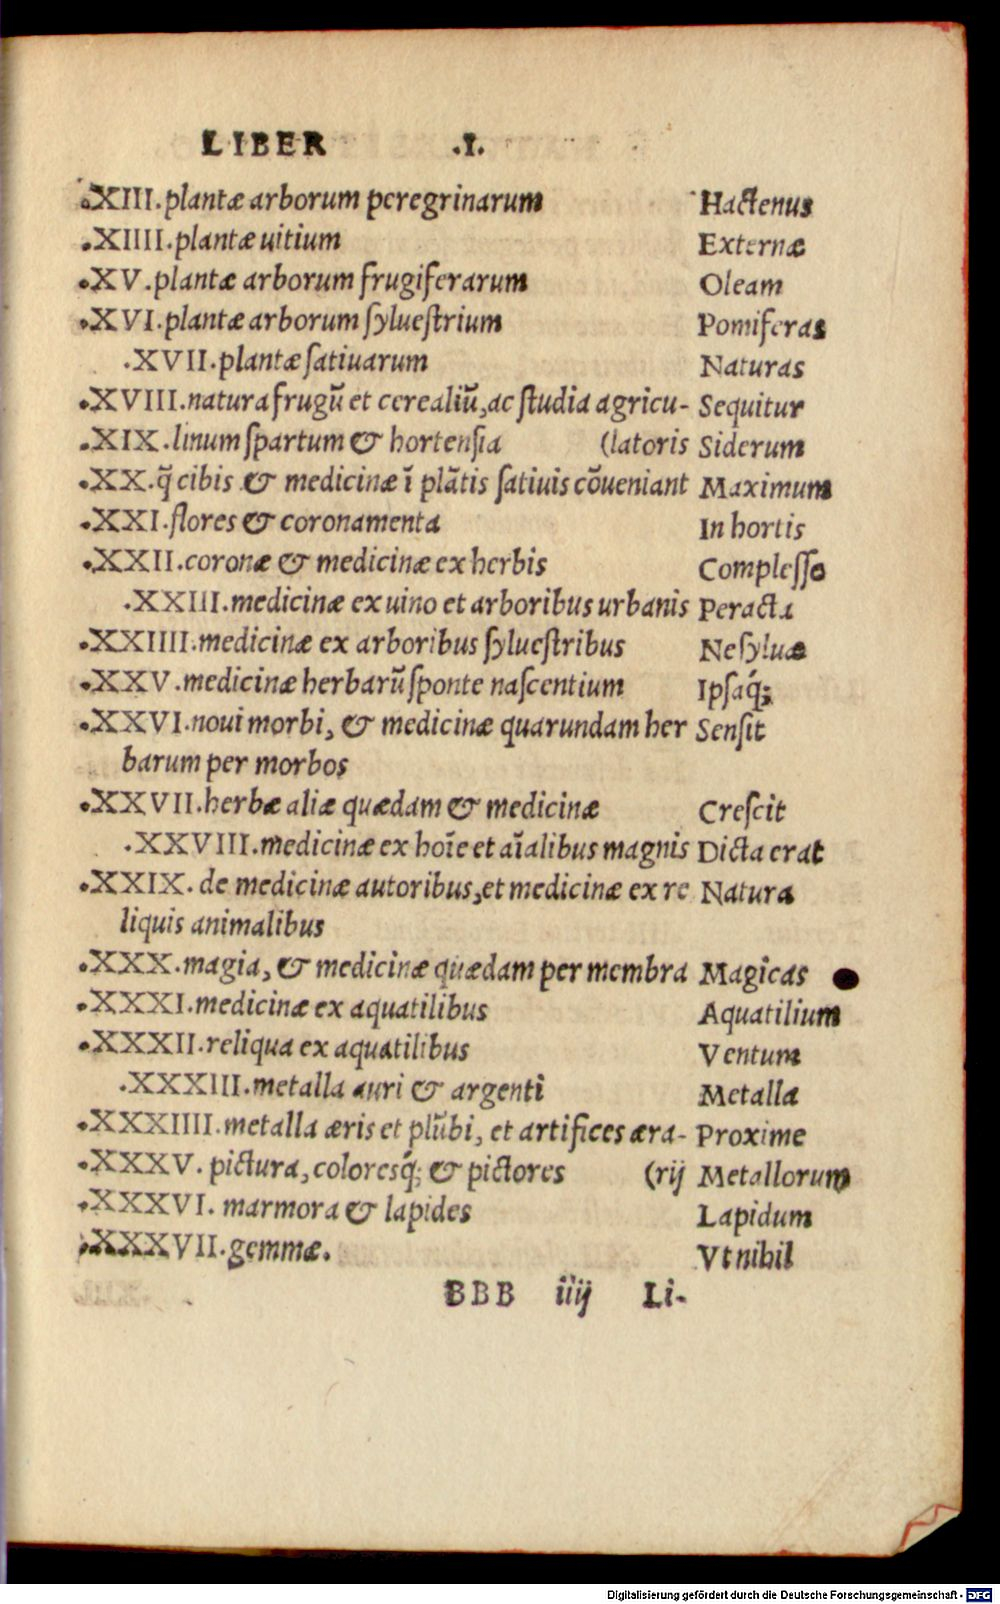 LIBER .I.
.XIII.plantæ arborum peregrinarum Hactenus
.XIIII.plantæ uitium Externæ
.XV.plantæ arborum frugiferarum Oleam
.XVI.plantæ arborum ſylueſtrium Pomiferas
.XVII.plantæ ſatiuarum Naturas
.XVIII.natura frugū et cerealiū,ac ſtudia agricu- Sequitur
.XIX.linum ſpartum & hortenſia (latoris Siderum
.XX.q̄ cibis & medicinæ ī plātis ſatiuis cōueniant Maximum
.XXI.flores & coronamenta In hortis
.XXII.coronæ & medicinæ ex herbis Compleſſo
.XXIII.medicinæ ex uino et arboribus urbanis Peracta
.XXIIII.medicinæ ex arboribus ſylueſtribus Ne ſyluæ
.XXV.medicinæ herbarū ſponte naſcentium Ipſaq́;
.XXVI.noui morbi, & medicinæ quarundam her Senſit
barum per morbos
.XXVII.herbæ aliæ quædam & medicinæ Creſcit
.XXVIII.medicinæ ex hoīe et aīalibus magnis Dicta erat
.XXIX. de medicinæ autoribus,et medicinæ ex re Natura
liquis animalibus
.XXX.magia, & medicinæ quædam per membra Magicas
.XXXI.medicinæ ex aquatilibus Aquatilium
.XXXII.reliqua ex aquatilibus Ventum
.XXXIII.metalla auri & argenti Metalla
.XXXIIII.metalla æris et plūbi, et artifices æra- Proxime
.XXXV. pictura, coloresq́; & pictores (rij Metallorum
.XXXVI. marmora & lapides Lapidum
.XXXVII.gemmæ. Vt nihil
BBB iiij Li-
Digitalisierung gefördert durch die Deutsche Forschungsgemeinschaft - DFG